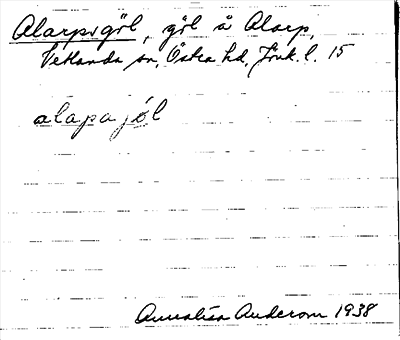 Alarpsgöl, göl å Alarp,
Vetlanda sn, Östra hd, Jönk. l. 15
alapajöl
Annalisa Anderson 1938